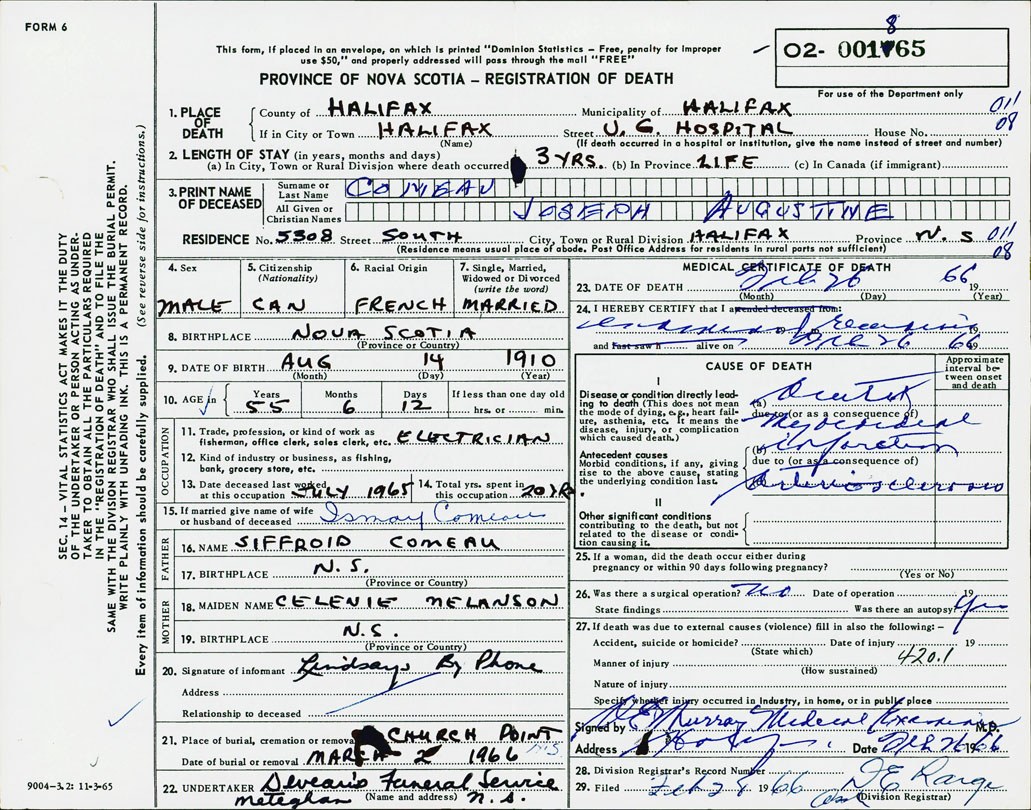 FORM 6
8
This form, if placed in an envelope, on which is printed "Dominion Statistics – Free, penalty for improper
use $50," and properly addressed will pass through the mail "FREE"
O2- 001765
PROVINCE OF NOVA SCOTIA – REGISTRATION OF DEATH
For use of the Department only
1. PLACE OF DEATH
County of HALIFAX Municipality of HALIFAX 011
If in City or Town HALIFAX Street U. G. HOSPITAL House No. 08
(Name) (If death occurred in a hospital or institution, give the name instead of street and number)
2. LENGTH OF STAY (in years, months and days)
(a) In City, Town or Rural Division where death occurred 3 YRS. (b) In Province LIFE (c) In Canada (if immigrant)
3. PRINT NAME OF DECEASED
Surname or Last Name COMEAU
All Given or Christian Names JOSEPH AUGUSTINE
RESIDENCE No. 5308 Street SOUTH City, Town or Rural Division HALIFAX Province N.S 011
(Residence means usual place of abode. Post Office Address for residents in rural parts not sufficient) 08
4. Sex MALE
5. Citizenship (Nationality) CAN
6. Racial Origin FRENCH
7. Single, Married, Widowed or Divorced (write the word) MARRIED
8. BIRTHPLACE NOVA SCOTIA
(Province or Country)
9. DATE OF BIRTH AUG 14 1910
(Month) (Day) (Year)
10. AGE in Years Months Days If less than one day old
55 6 12 hrs. or min.
OCCUPATION
11. Trade, profession, or kind of work as
fisherman, office clerk, sales clerk, etc. ELECTRICIAN
12. Kind of industry or business, as fishing,
bank, grocery store, etc.
13. Date deceased last worked at this occupation JULY 1965
14. Total yrs. spent in this occupation 20 YRS.
15. If married give name of wife
or husband of deceased Ismay Comeau
FATHER
16. NAME SIFFROID COMEAU
17. BIRTHPLACE N.S.
(Province or Country)
MOTHER
18. MAIDEN NAME CELENIE MELANSON
19. BIRTHPLACE N.S.
(Province or Country)
20. Signature of informant Lindsays By Phone
Address
Relationship to deceased
21. Place of burial, cremation or removal CHURCH POINT NS
Date of burial or removal MARCH 2 1966
22. UNDERTAKER Deveau's Funeral Service
Meteghan (Name and address) N.S.
MEDICAL CERTIFICATE OF DEATH
23. DATE OF DEATH Feb 26 66 19
(Month) (Day) (Year)
24. I HEREBY CERTIFY that I attended deceased from:
19
and last saw h alive on Feb 26 66 19
CAUSE OF DEATH
Approximate interval between onset and death
I
Disease or condition directly leading to death (This does not mean the mode of dying, e.g., heart failure, asthenia, etc. It means the disease, injury, or complication which caused death.)
(a) Acute
due to (or as a consequence of)
Myocardial
Antecedent causes
Morbid conditions, if any, giving rise to the above cause, stating the underlying condition last.
(b) Infarction
due to (or as a consequence of)
(c) Arteriosclerosis
II
Other significant conditions
contributing to the death, but not related to the disease or condition causing it.
25. If a woman, did the death occur either during
pregnancy or within 90 days following pregnancy?
(Yes or No)
26. Was there a surgical operation? No Date of operation 19
State findings Was there an autopsy? Yes
27. If death was due to external causes (violence) fill in also the following: –
Accident, suicide or homicide? Date of injury 19
(State which)
Manner of injury 420.1
(How sustained)
Nature of injury
Specify whether injury occurred in Industry, in home, or in public place
Signed by Murray Medical Examiner M.D.
Address Date Feb 26 1966
28. Division Registrar's Record Number
29. Filed Feb 28 1966
(Division Registrar)
SEC. 14 – VITAL STATISTICS ACT MAKES IT THE DUTY
OF THE UNDERTAKER OR PERSON ACTING AS UNDER-
TAKER TO OBTAIN ALL THE PARTICULARS REQUIRED
IN THE "REGISTRATION OF DEATH" AND TO FILE THE
SAME WITH THE DIVISION REGISTRAR WHO SHALL ISSUE THE BURIAL PERMIT.
WRITE PLAINLY WITH UNFADING INK. THIS IS A PERMANENT RECORD.
Every item of information should be carefully supplied. (See reverse side for instructions.)
9004-3.2: 11-3-65